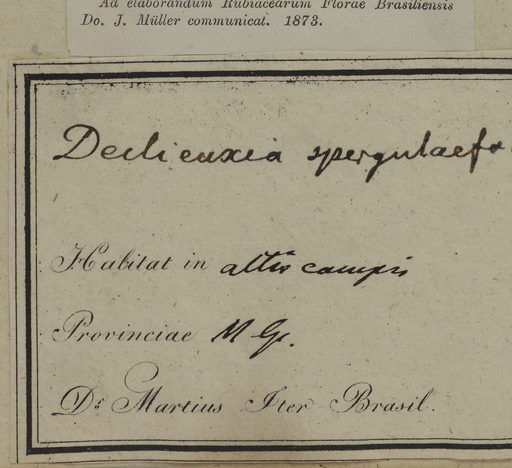 Ad elaborandum Rubiacearum Florae Brasiliensis
Do. J. Müller communicat. 1873.
Declieuxia spergulaefo
Habitat in altis campis
Provinciae M Gr.
Dr Martius Iter Brasil.